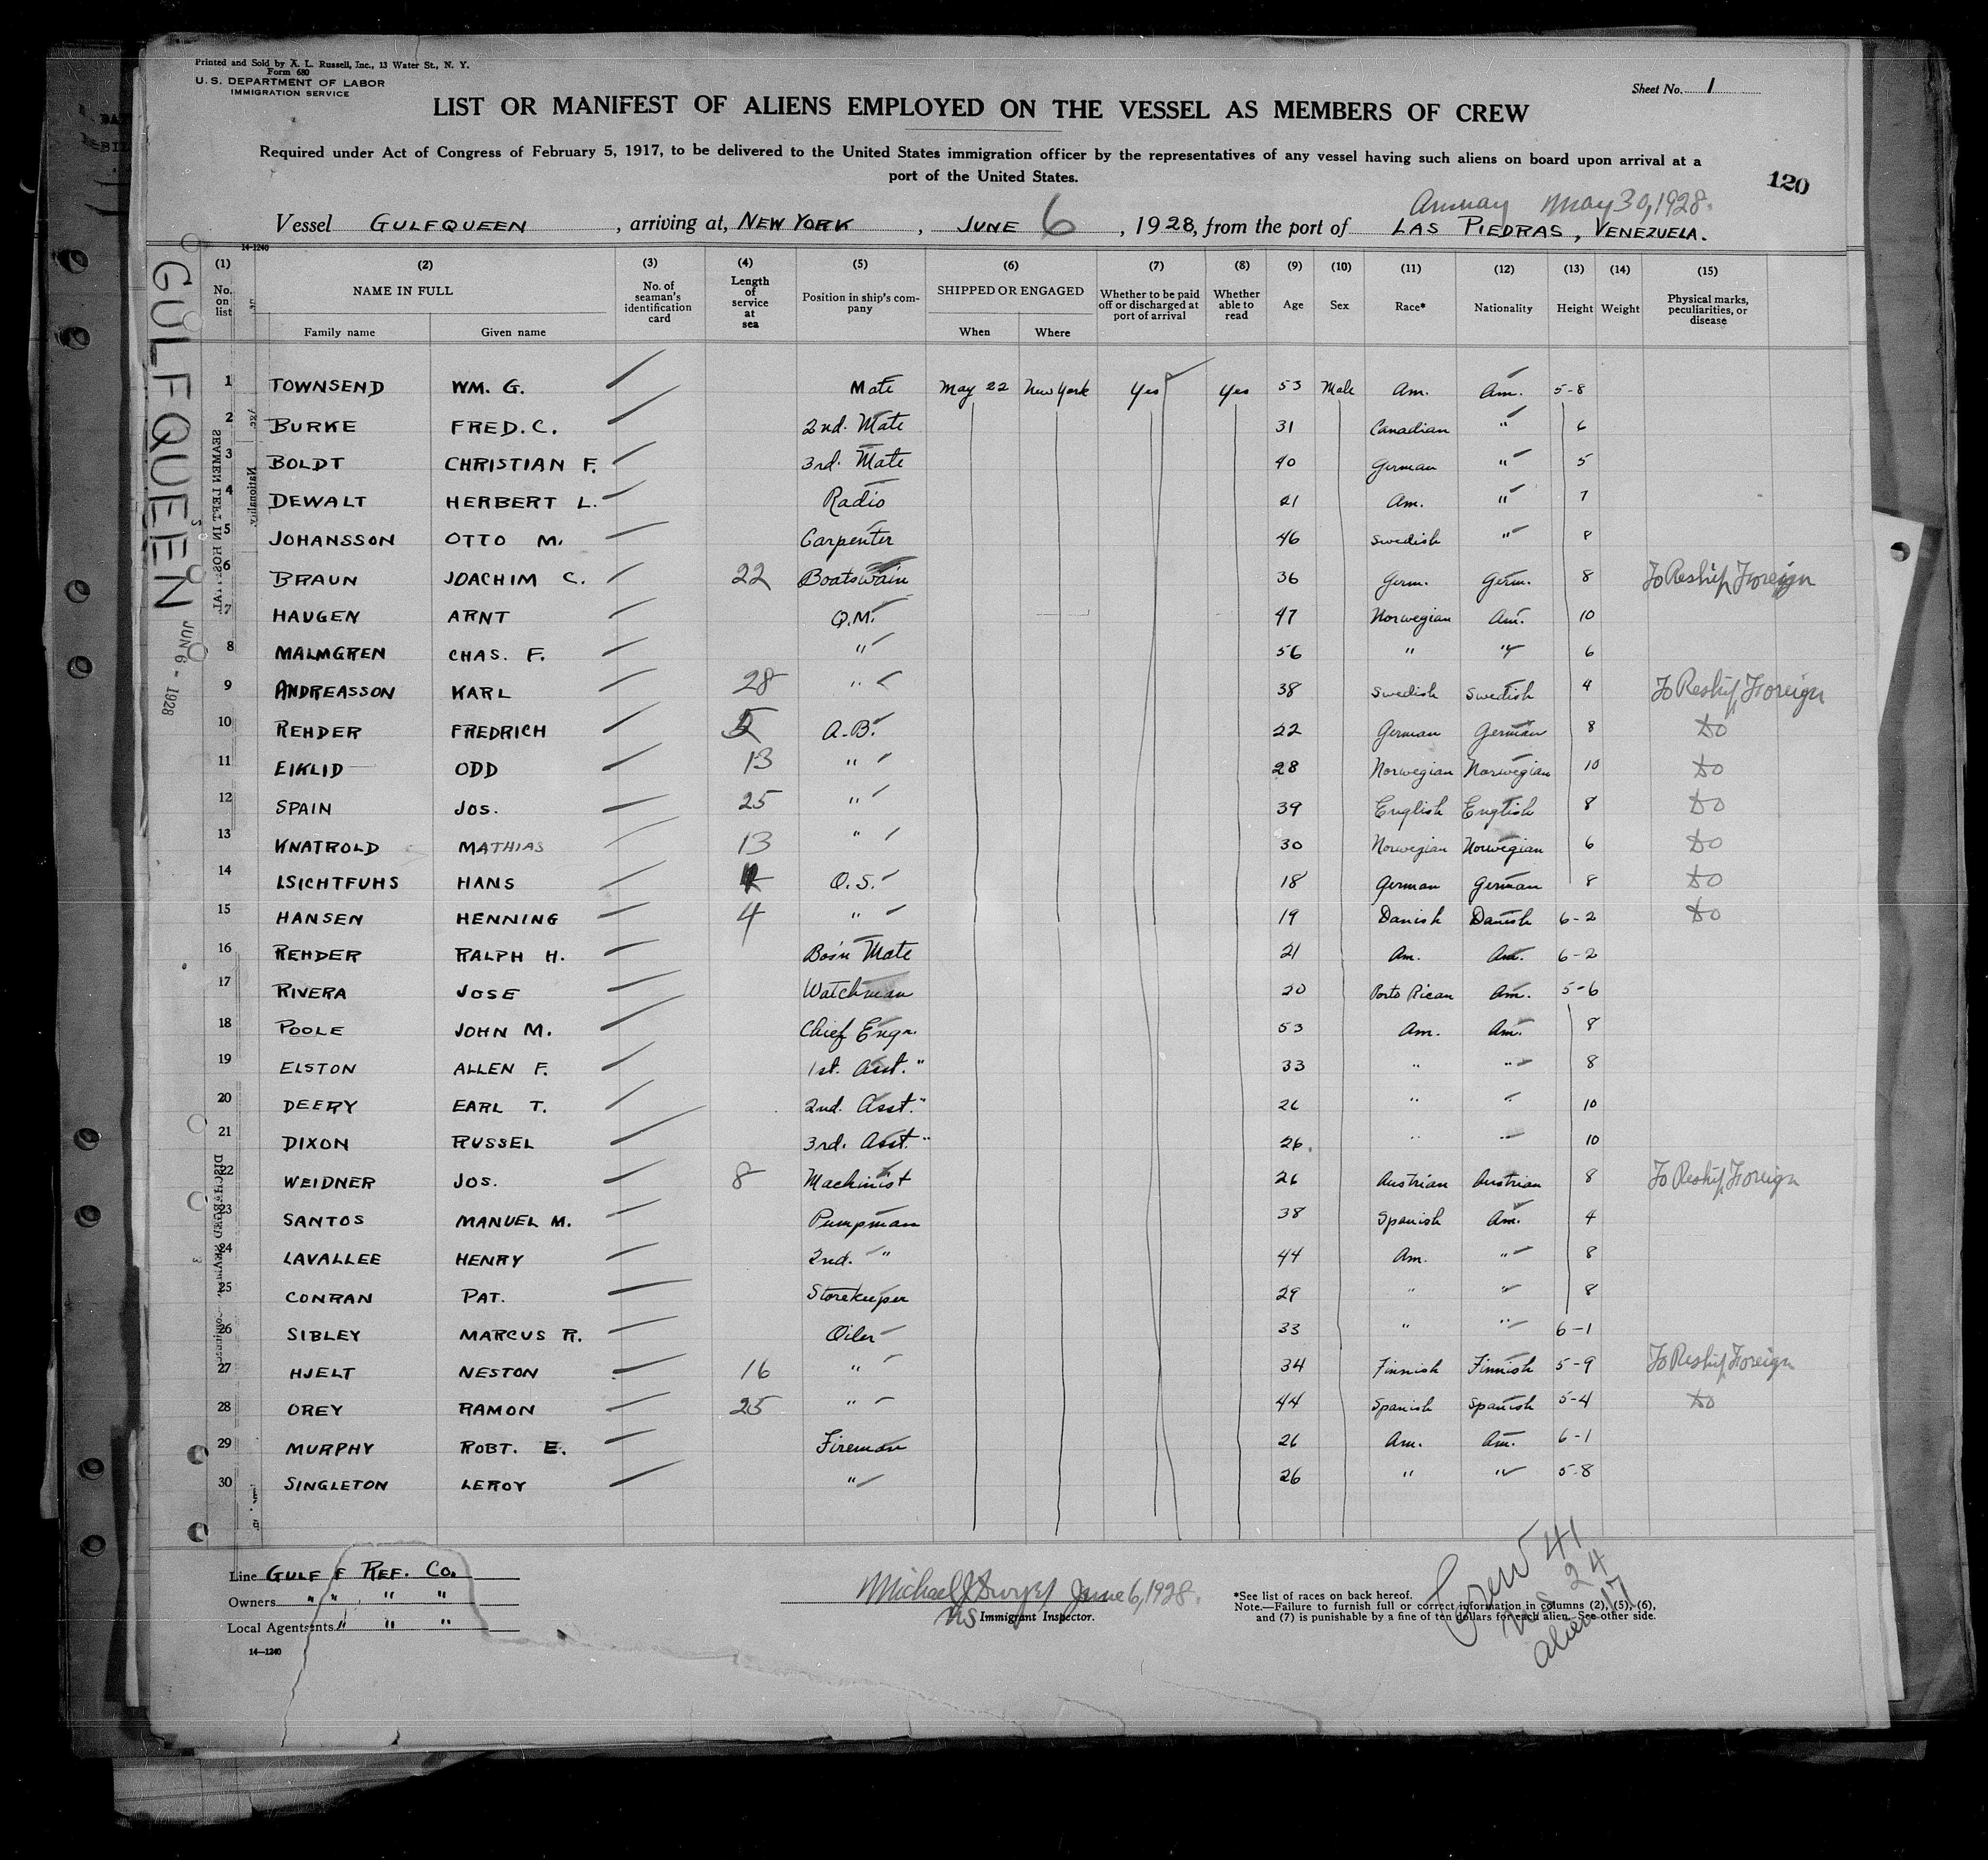 Printed and Sold by A. L. Russell, Inc., 13 Water St., N. Y.
Form 680
U. S. DEPARTMENT OF LABOR
IMMIGRATION SERVICE
Sheet No. 1
LIST OR MANIFEST OF ALIENS EMPLOYED ON THE VESSEL AS MEMBERS OF CREW
Required under Act of Congress of February 5, 1917, to be delivered to the United States immigration officer by the representatives of any vessel having such aliens on board upon arrival at a
port of the United States.
120
May 30, 1928.
Vessel GULFQUEEN, arriving at, NEW YORK, JUNE 6, 1928, from the port of LAS PIEDRAS, VENEZUELA.
14-1240
(1) (2) (3) (4) (5) (6) (7) (8) (9) (10) (11) (12) (13) (14) (15)
No. on list NAME IN FULL Family name Given name No. of seaman's identification card Length of service at sea Position in ship's company SHIPPED OR ENGAGED When Where Whether to be paid off or discharged at port of arrival Whether able to read Age Sex Race* Nationality Height Weight Physical marks, peculiarities, or disease
1 TOWNSEND WM. G. Mate May 22 New York Yes Yes 53 Male Am. Am. 5-8
2 BURKE FRED. C. 2nd. Mate 31 Canadian " 6
3 BOLDT CHRISTIAN F. 3rd. Mate 40 German " 5
4 DEWALT HERBERT L. Radio 21 Am. " 7
5 JOHANSSON OTTO M. Carpenter 46 Swedish " 8
6 BRAUN JOACHIM C. 22 Boatswain 36 Germ. Germ. 8 To Reship Foreign
7 HAUGEN ARNT Q.M. 47 Norwegian Am. 10
8 MALMGREN CHAS. F. " 56 " " 6
9 ANDREASSON KARL 28 " 38 Swedish Swedish 4 To Reship Foreign
10 REHDER FREDRICH 5 A.B. 22 German German 8 Do
11 EIKLID ODD 13 " 28 Norwegian Norwegian 10 Do
12 SPAIN JOS. 25 " 39 English English 8 Do
13 KNATROLD MATHIAS 13 " 30 Norwegian Norwegian 6 Do
14 LSICHTFUHS HANS O.S. 18 German German 8 Do
15 HANSEN HENNING 4 " 19 Danish Danish 6-2 Do
16 REHDER RALPH H. Bos'n Mate 21 Am. Am. 6-2
17 RIVERA JOSE Watchman 20 Porto Rican Am. 5-6
18 POOLE JOHN M. Chief Engr. 53 Am. Am. 8
19 ELSTON ALLEN F. 1st. Asst. " 33 " " 8
20 DEERY EARL T. 2nd. Asst. " 26 " " 10
21 DIXON RUSSEL 3rd. Asst. " 26. " " 10
22 WEIDNER JOS. 8 Machinist 26 Austrian Austrian 8 To Reship Foreign
23 SANTOS MANUEL M. Pumpman 38 Spanish Am. 4
24 LAVALLEE HENRY 2nd. " 44 Am. " 8
25 CONRAN PAT. Storekeeper 29 " " 8
26 SIBLEY MARCUS R. Oiler 33 " " 6-1
27 HJELT NESTON 16 " 34 Finnish Finnish 5-9 To Reship Foreign
28 OREY RAMON 25 " 44 Spanish Spanish 5-4 Do
29 MURPHY ROBT. E. Fireman 26 Am. Am. 6-1
30 SINGLETON LEROY " 26 " " 5-8
GULFQUEEN
JUN 6 - 1928
SEAMEN LEFT IN HOSPITAL
Nationality
Line GULF REF. CO.
Owners " " " "
Local Agents " " "
14-1240
June 6, 1928.
US Immigrant Inspector.
*See list of races on back hereof.
Note.—Failure to furnish full or correct information in columns (2), (5), (6),
and (7) is punishable by a fine of ten dollars for each alien. See other side.
Crew 41
US 24
Alien 17